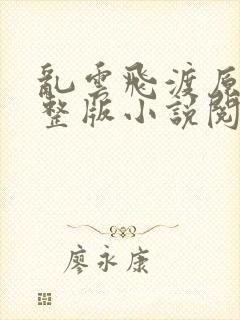 亂雲飛渡原
整版小說閱
廖永康